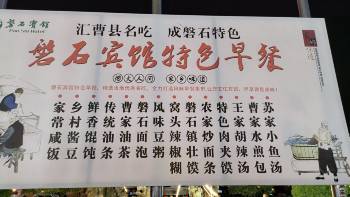 磐石賓館
Pan Shi Hotel
汇曹县名吃 成磐石特色
磐石宾馆特色早餐
家乡味道
家常咸饭
乡村酱豆
鲜香馄饨
传统油条
曹家油茶
磐石面泡
风味豆粥
窝头辣椒糊
磐石镇壮馍
农家炒面条
特色肉夹馍
王家胡辣汤
曹家水煎包
苏家小鱼汤